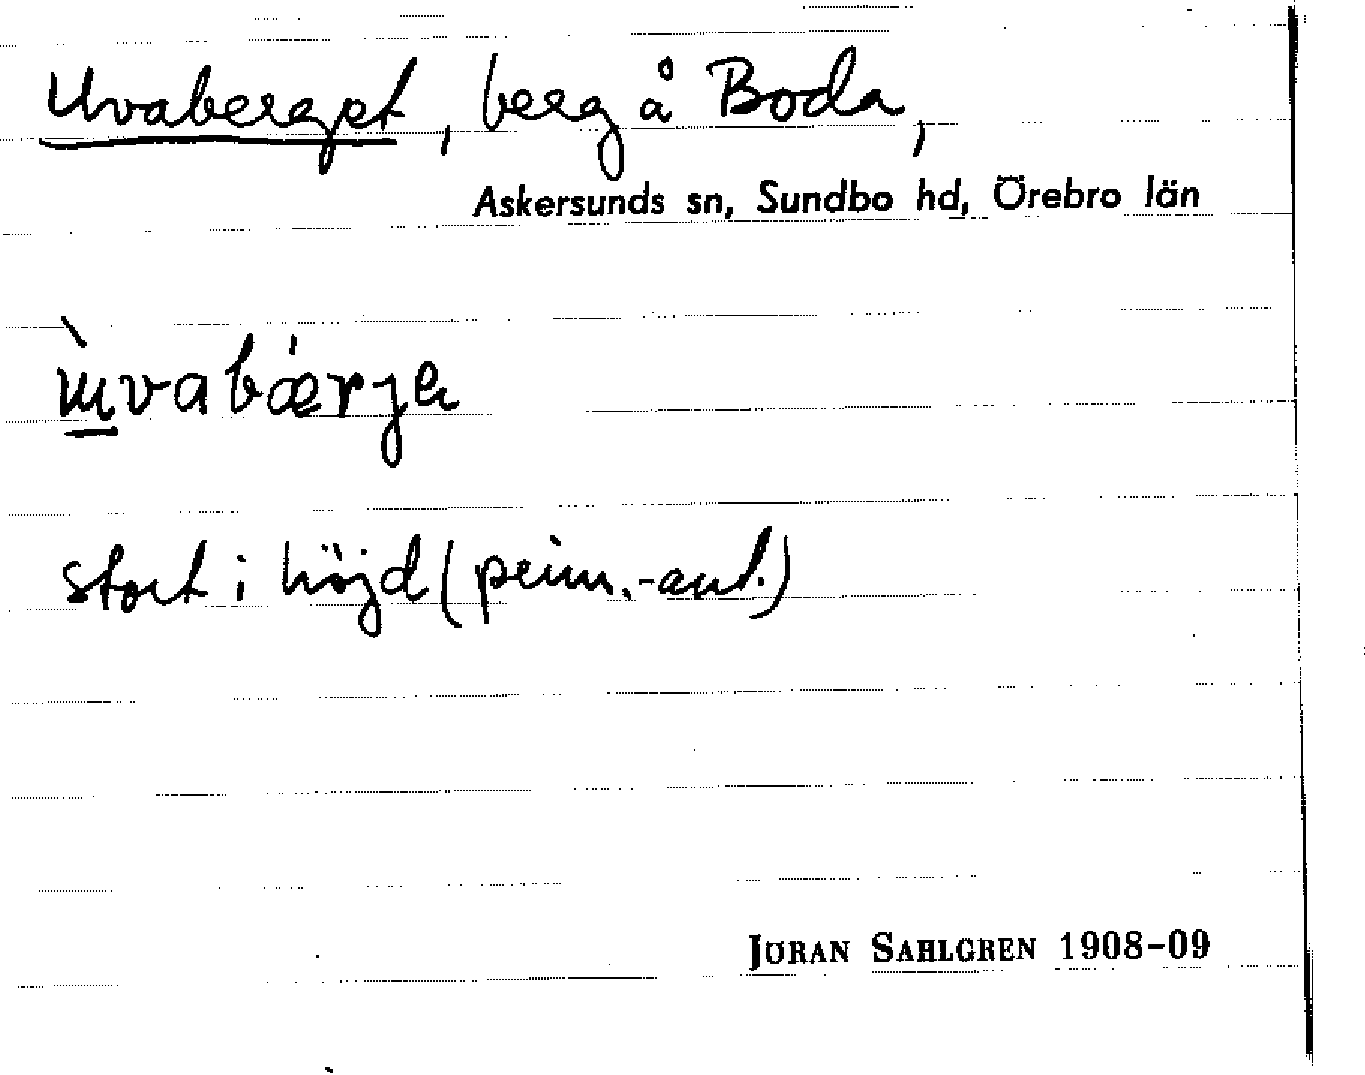 Uvaberget, berg å Boda,
Askersunds sn, Sundbo hd, Örebro län
stort i höjd (prim.-ant.)
JÖRAN SAHLGREN 1908-09